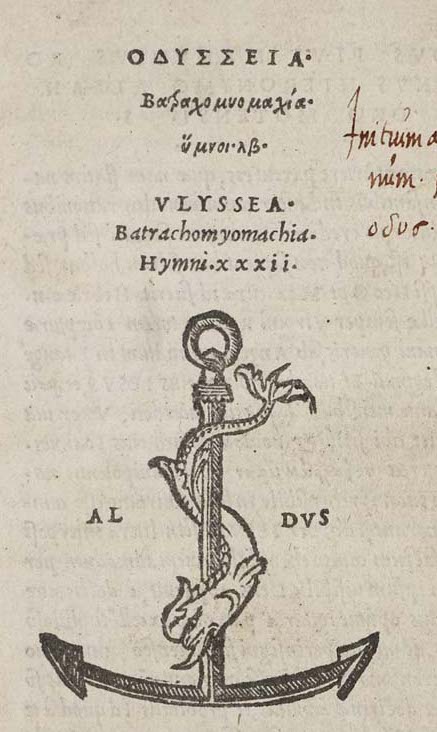 ΟΔΥΣΣΕΙΑ·
Βατραχομυομαχία·
ὕμνοι·λβ·
VLYSSEA·
Batrachomyomachia·
Hymni·xxxii·
AL DVS
Initium
num
οδυσ·